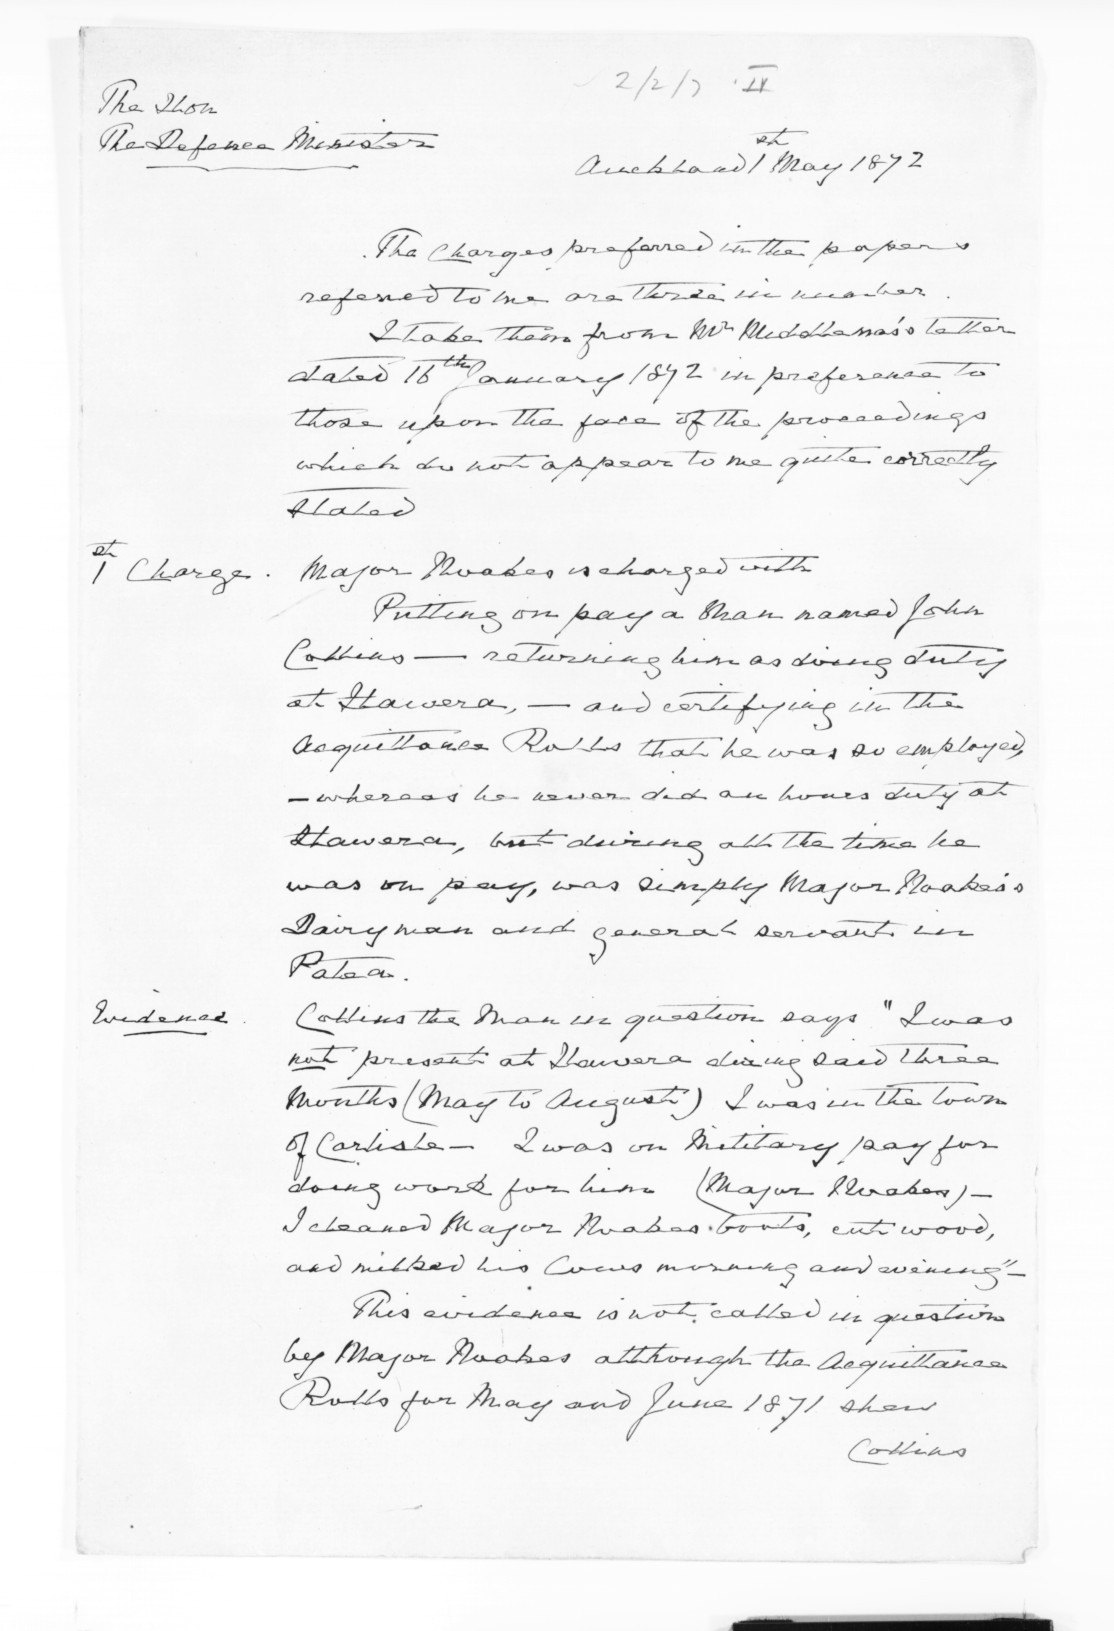 2/2/7 IV
The Hon
The Defence Minister
Auckland 1st May 1872
The Charges preferred in the papers
referred to me are three in number.
I take them from Mr Middlemas's letter
dated 16th January 1872 in preference to
those upon the face of the proceedings
which do not appear to me quite correctly
stated
1st Charge. Major Noakes is charged with
Putting on pay a Man named John
Collins — returning him as doing duty
at Hawera, — and certifying in the
Acquittance Rolls that he was so employed,
— whereas he never did an hours duty at
Hawera, but during all the time he
was on pay, was simply Major Noakes's
Dairyman and general servant in
Patea.
Evidence. Collins the Man in question says "I was
not present at Hawera during said three
Months (May to August) I was in the town
of Carlisle — I was on Military pay for
doing work for him (Major Noakes) —
I cleaned Major Noakes boots, cut wood,
and milked his Cows morning and evening" —
This evidence is not called in question
by Major Noakes although the Acquittance
Rolls for May and June 1871 shew
Collins